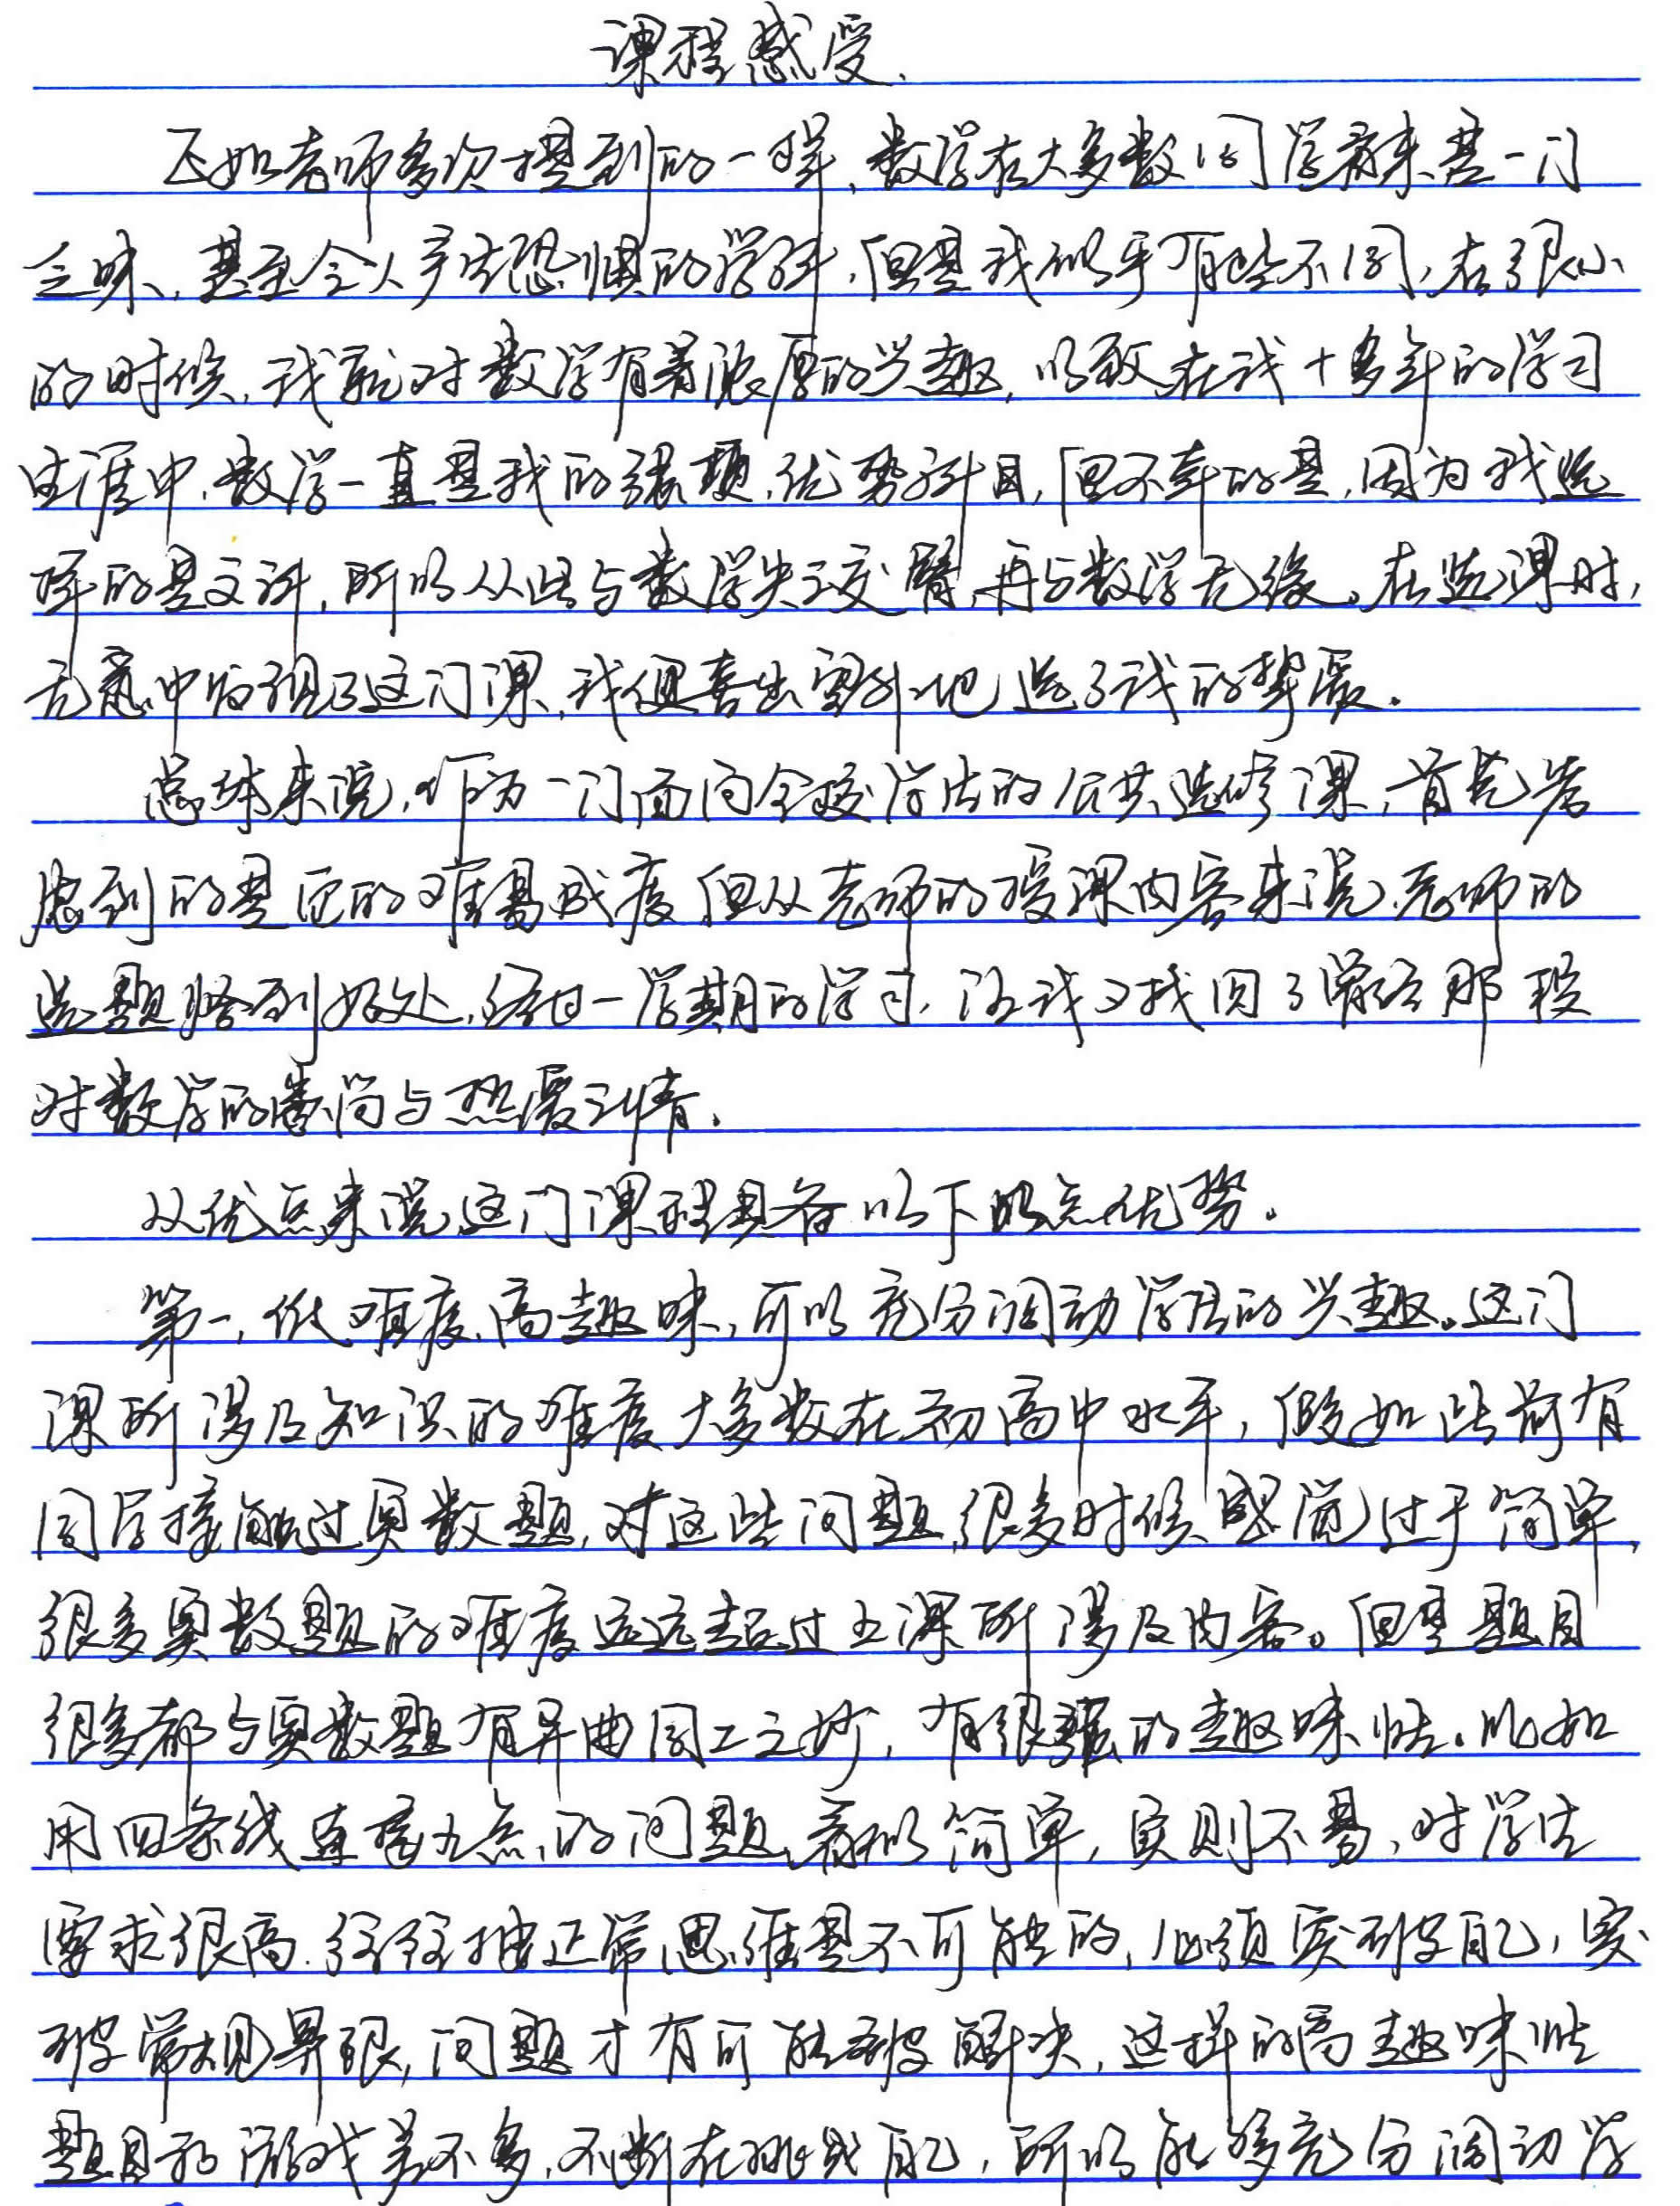 课程感受.
正如老师多次提到的一样,数学在大多数同学看来是一门
乏味,甚至令人产生恐惧的学科,但是我似乎有些不同,在很小
的时候,我就对数学有着浓厚的兴趣,以致在我十多年的学习
生涯中,数学一直是我的强项,优势科目,但不幸的是,因为我选
择的是文科,所以从此与数学失之交臂,再与数学无缘。在选课时,
无意中发现了这门课,我便喜出望外地选了我的挚爱。
总体来说,作为一门面向全校学生的公共选修课,首先考
虑到的是它的难易成度,但从老师的授课内容来说,老师的
选题恰到好处,经过一学期的学习,让我又找回了曾经那段
对数学的崇尚与热爱之情。
从优点来说,这门课程具备以下几点优势。
第一,低难度,高趣味,可以充分调动学生的兴趣。这门
课所涉及知识的难度大多数在初高中水平,假如此前有
同学接触过奥数题,对这些问题,很多时候感觉过于简单,
很多奥数题的难度远远超过上课所涉及内容。但是题目
很多都与奥数题有异曲同工之妙,有很强的趣味性。比如
用四条线连接九点的问题,看似简单,实则不易,对学生
要求很高.往往按正常思维是不可能的,必须突破自己,突
破常规界限,问题才有可能被解决,这样的高趣味性
题目和游戏差不多,不断在挑战自己,所以能够充分调动学